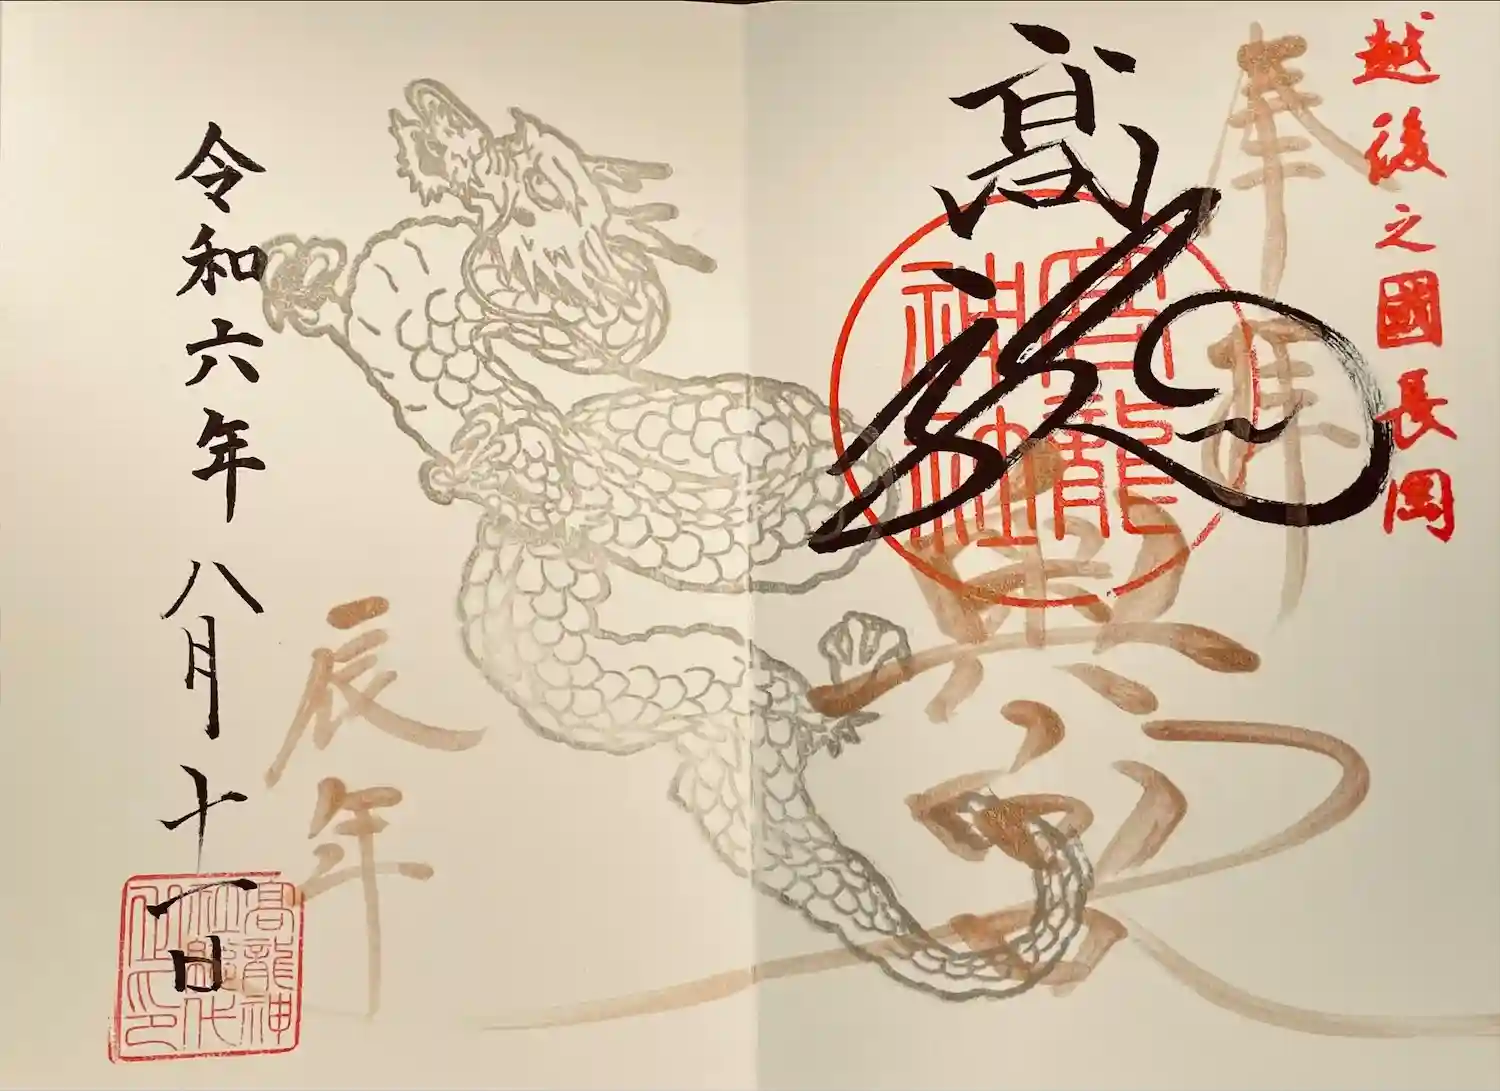 越後之國長岡
奉拝
髙龍
高龍神社
辰年
令和六年八月十一日
髙龍神
社總代